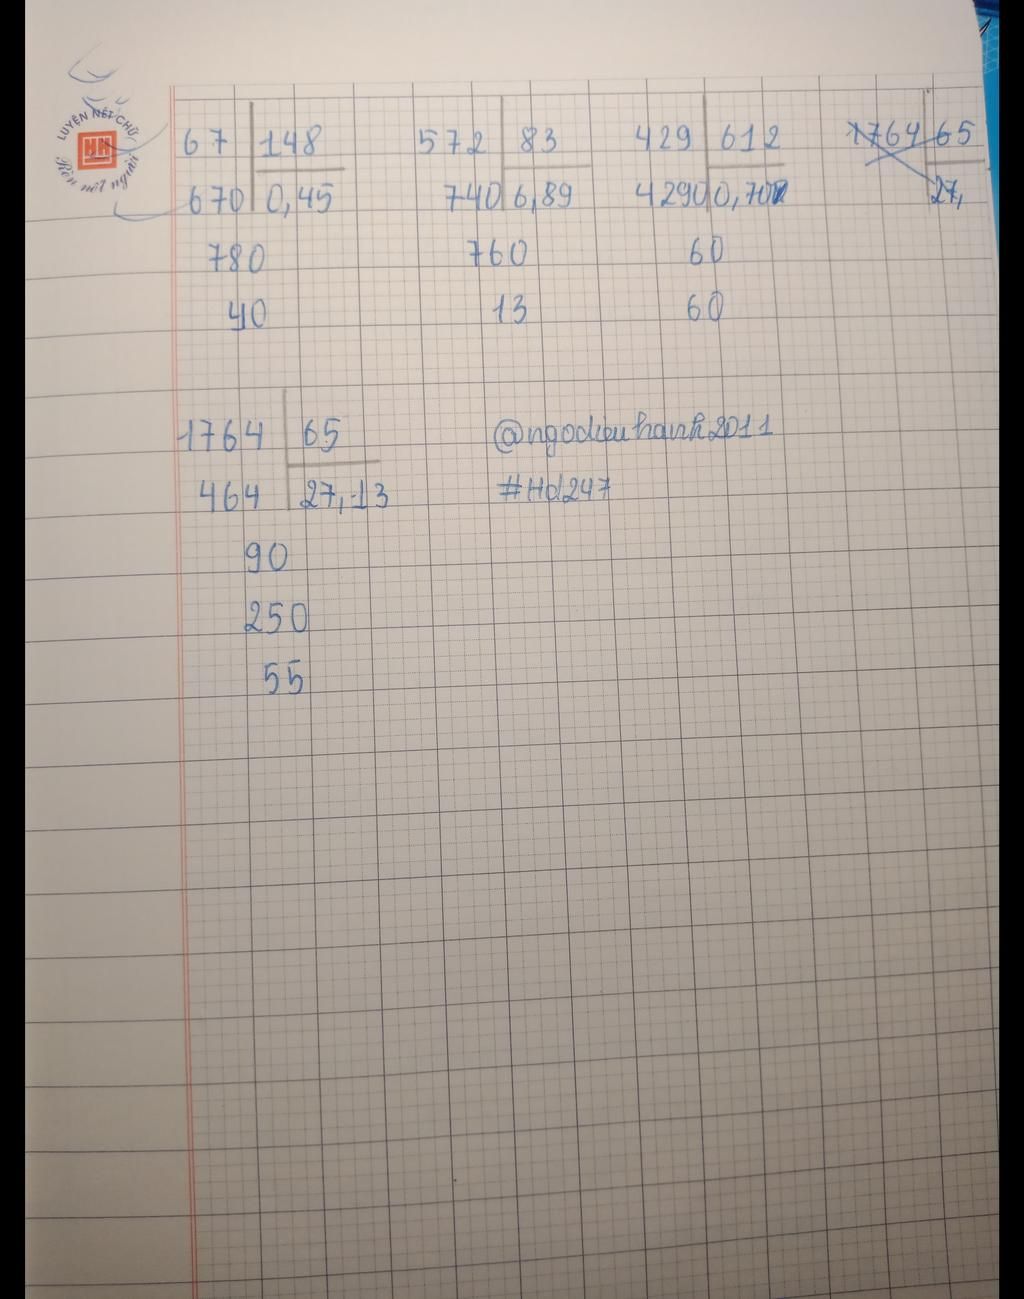 LUYỆN NÉT CHỮ
HH
Rèn nết người
67 148 572 83 429 612 1764 65
670 0,45 740 6,89 4290 0,70 27,
780 760 60
40 13 60
1764 65 @ngodieuhanh2011
464 27,13 #Hd247
90
250
55